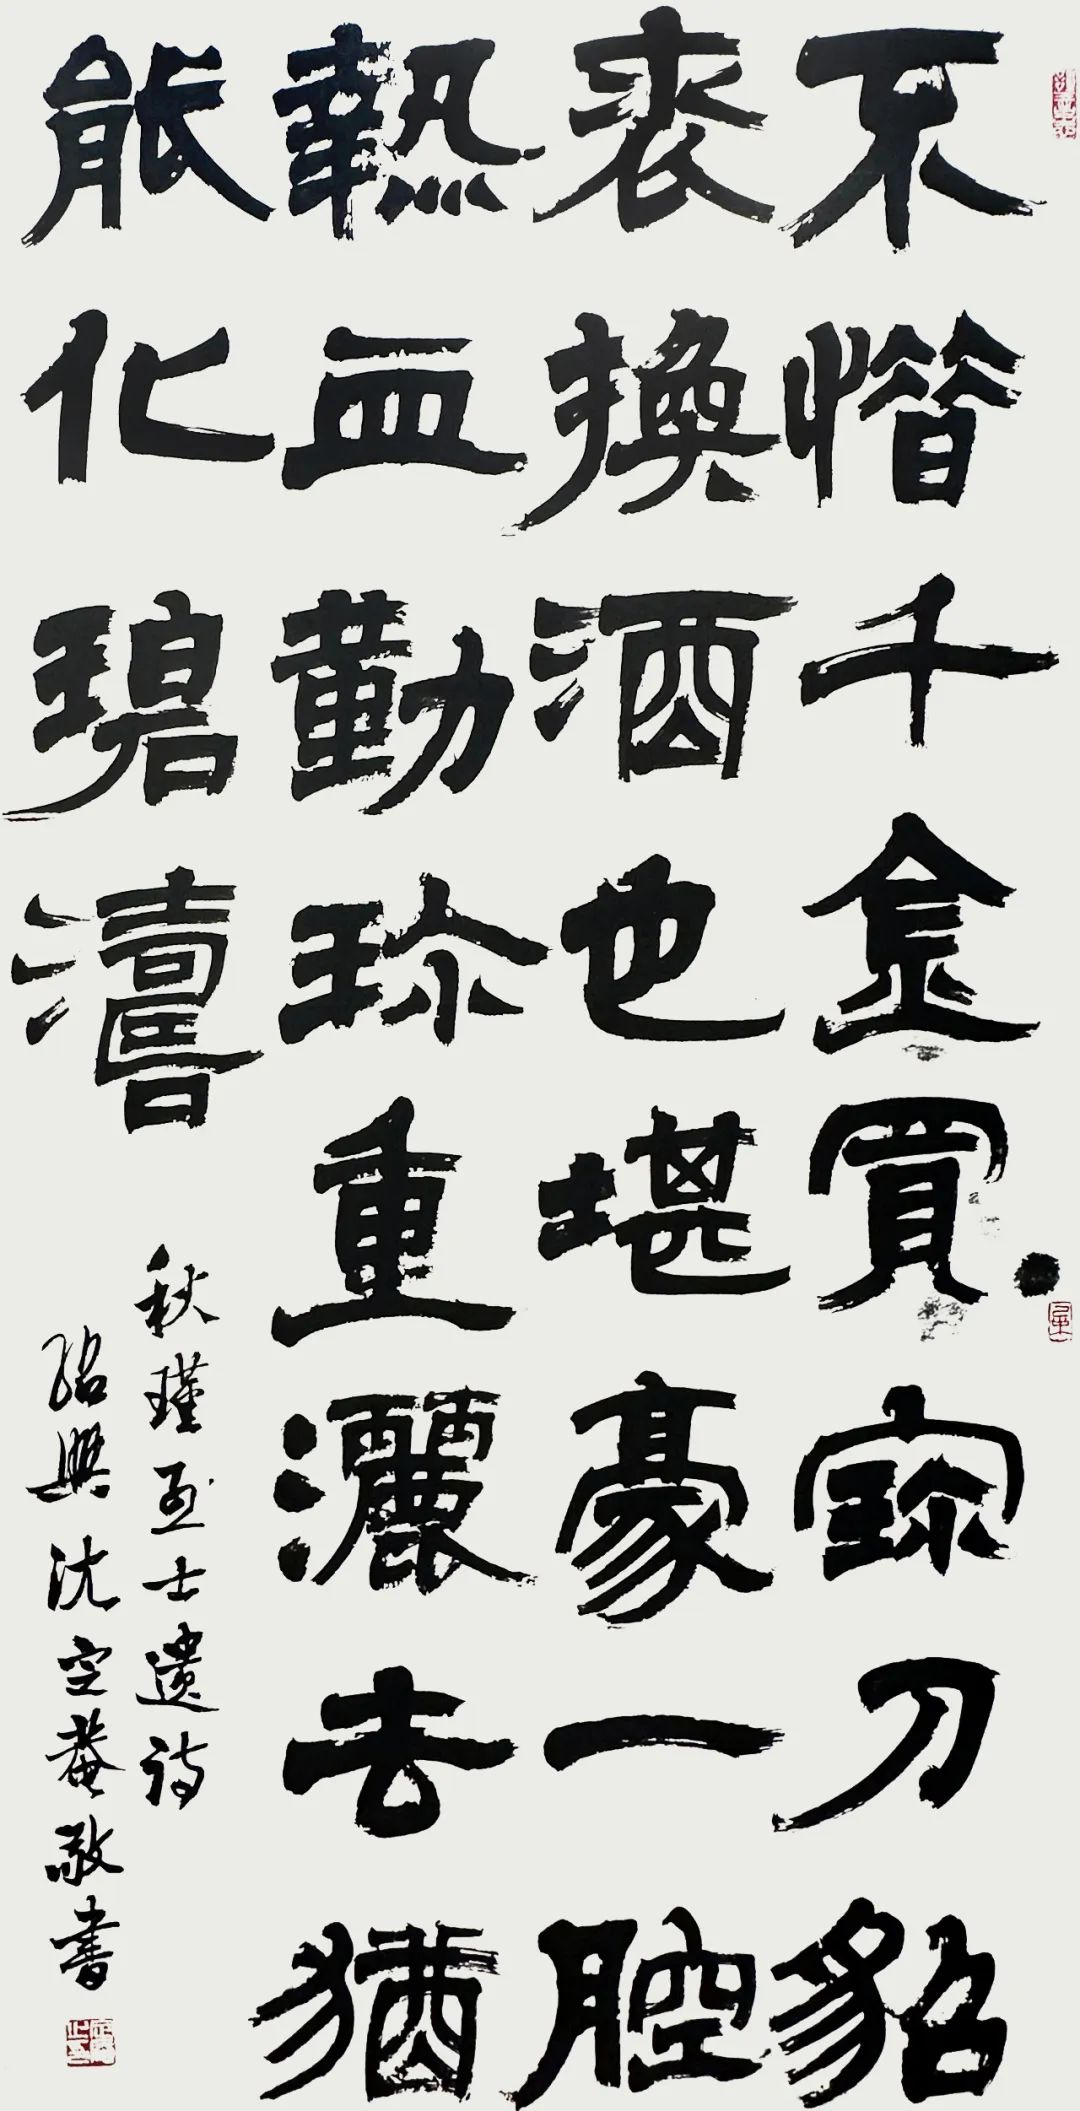 不惜千金買寳刀貂
裘換酒也堪豪一腔
熱血勤珍重灑去猶
能化碧濤
秋瑾烈士遺詩
紹興沈定菴敬書